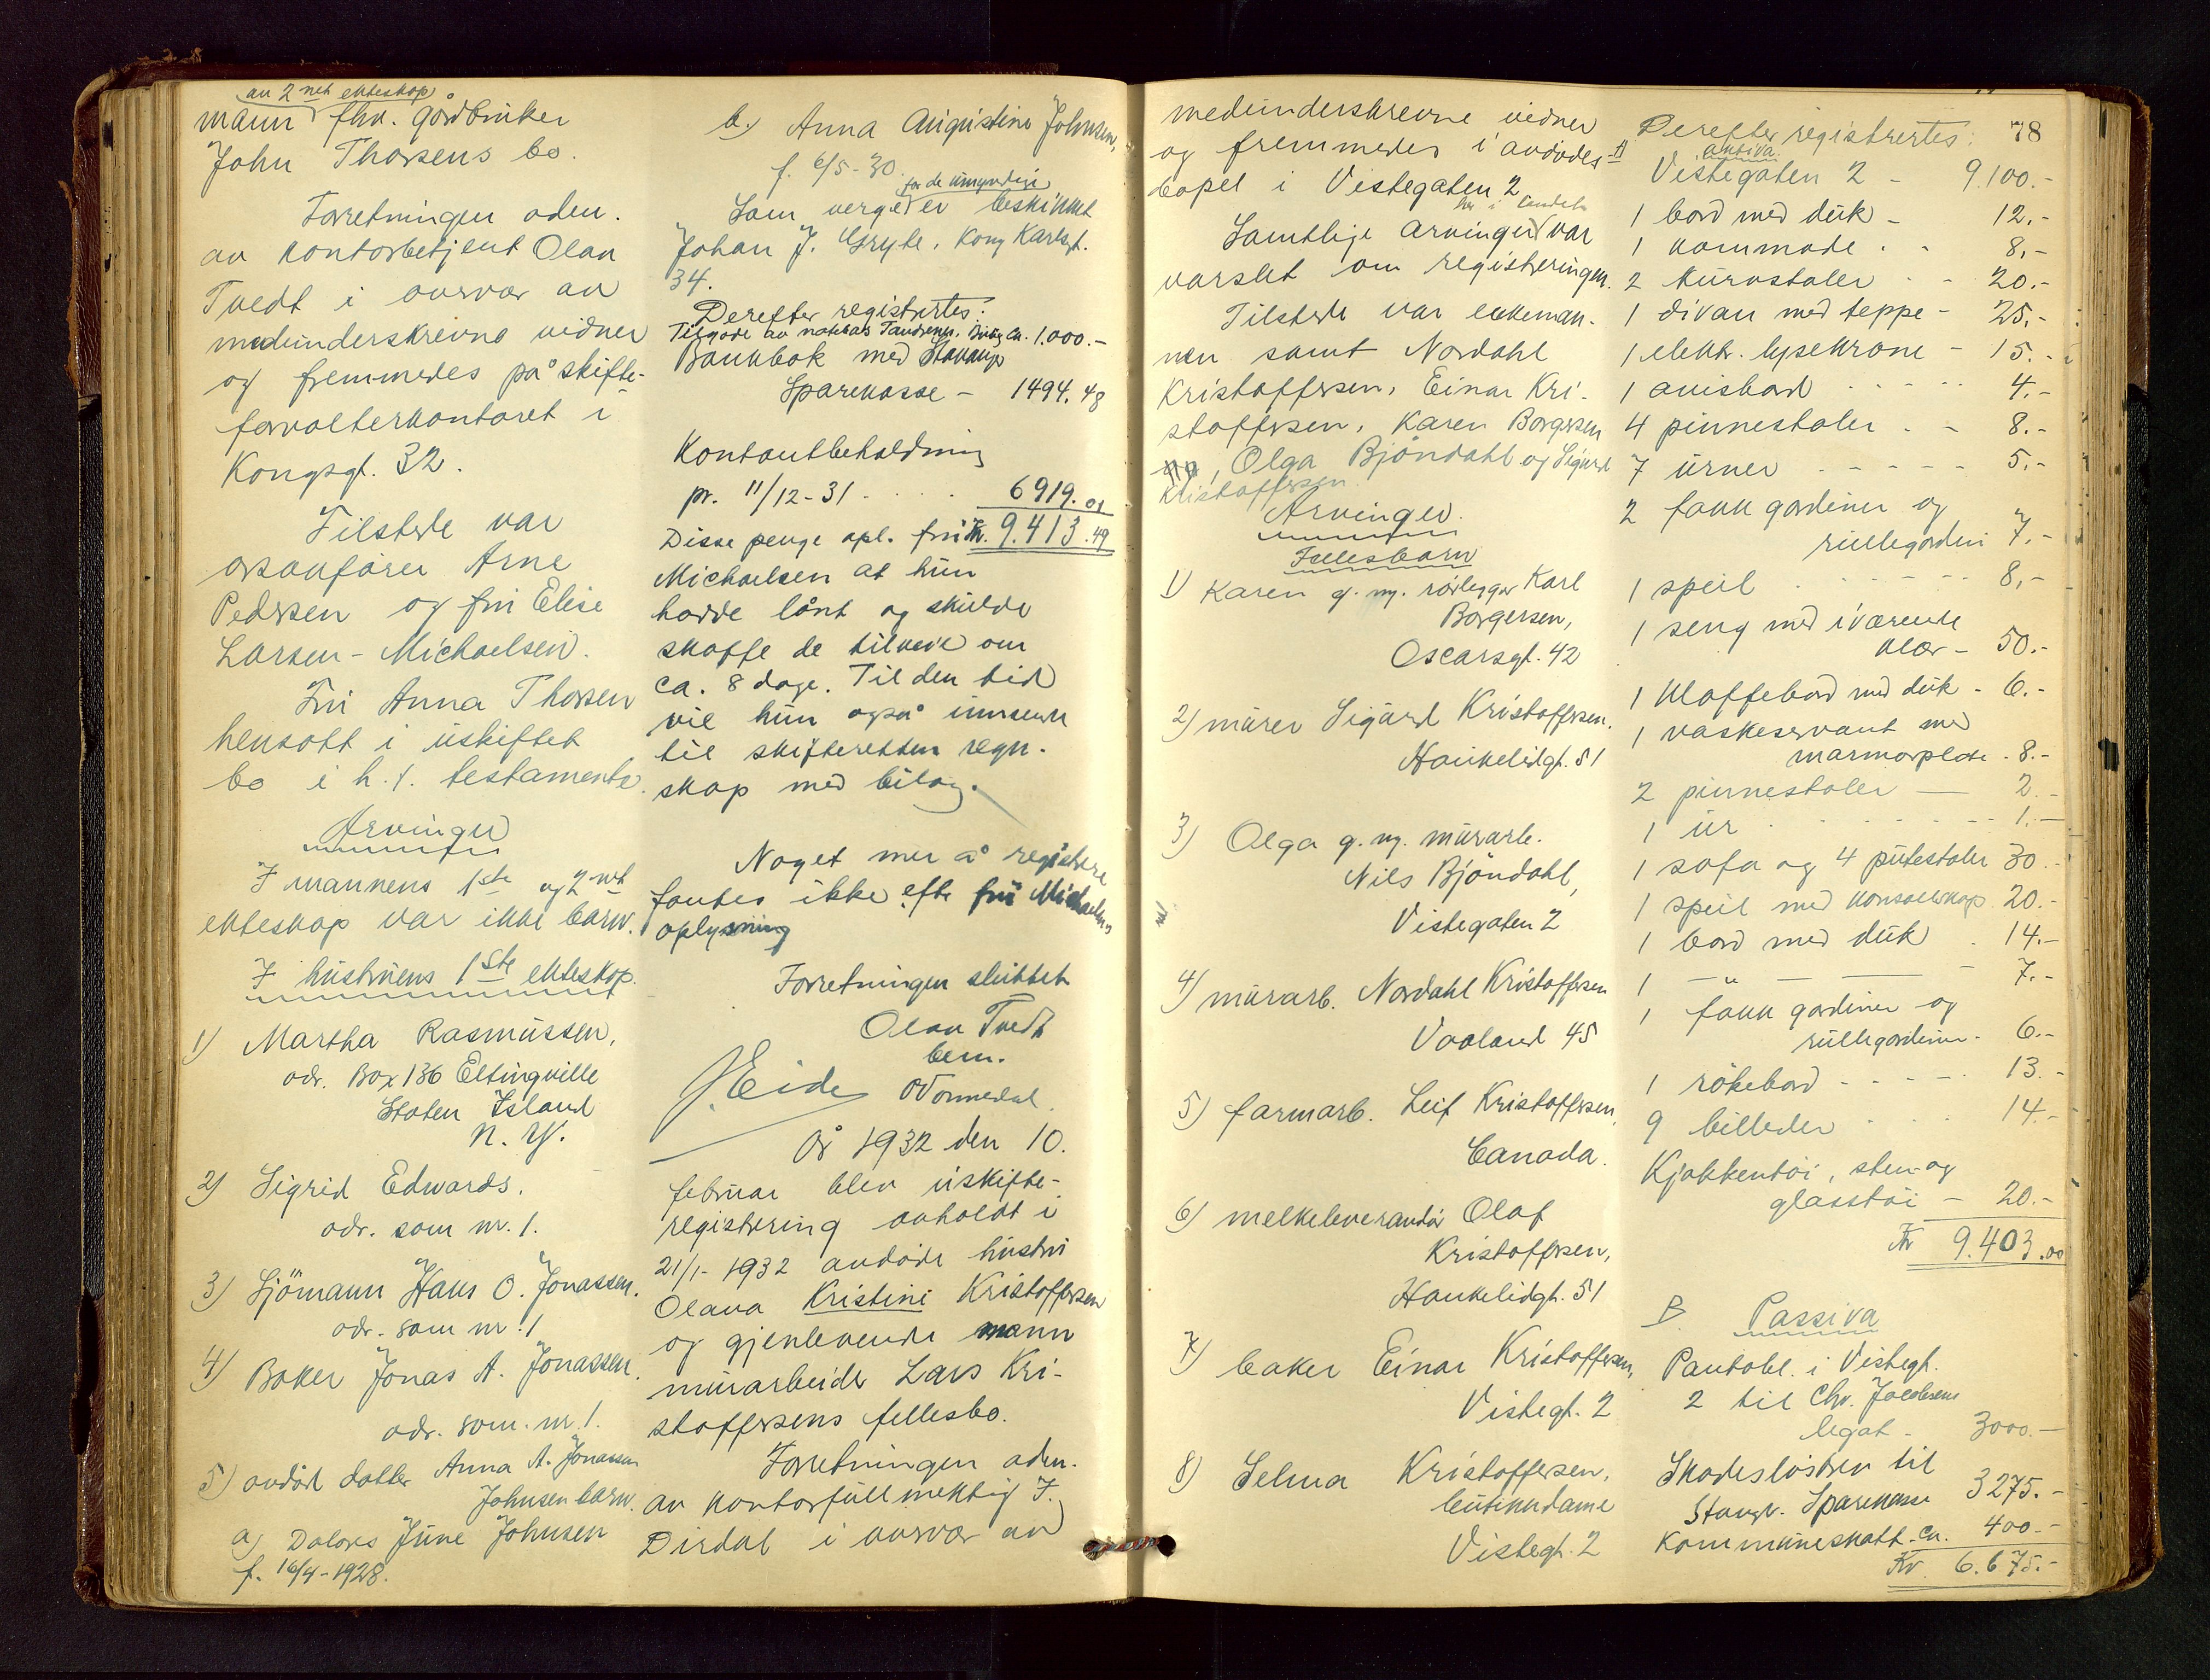 av 2net ekteskap
mann fhv. gårdbruker
John Thorsens bo.
Forretningen adm.
av kontorbetjent Olav
Tvedt i overvær av
medunderskrevne vidner
og fremmedes på skifte-
forvalterkontoret i
Kongsgt. 32.
Tilstede var
orsanfører Arne
Pedersen og fru Elise
Larsen-Michaelsen.
Fru Anna Thorsen
hensatt i uskiftet
bo i h.t. testamente.
Arvinger
I mannens 1ste og 2net
ekteskap var ikke barn.
I hustruens 1ste ekteskap.
1) Martha Rasmussen,
adr. Box 136 Eltingville
Staten Island
N. Y.
2) Sigrid Edwards.
adr. som nr. 1.
3) Sjömann Hans O. Jonassen.
adr. som nr. 1
4) Baker Jonas A. Jonassen.
adr. som nr. 1.
5) avdöd datter Anna A. Jonassen
Johnsen barn.
a) Dolores June Johnsen
f. 16/4-1928.
b.) Anna Augustine Johnsen,
f. 6/5-30.
for de umyndige
Som verge er beskikket
Johan J. Gryte, Kong Karlsgt.
34.
Derefter registrertes:
Tilgode av 1.000.-
Bankbok med Stavanger
Sparekasse - 1494.48
Kontantbeholdning
pr. 11/12-31 . . . . 6919.01
Disse penge opl. fru Kr. 9.413.49
Michaelsen at hun
hadde lånt og skulde
skaffe de tilveie om
ca. 8 dage. Til den tid
vil hun også innsende
til skifteretten regn-
skap med bilag.
Noget mer å registrere
fantes ikke efter fru Michaelsens
oplysning
Forretningen sluttet
Olav Tvedt
bem.
J. Eide
År 1932 den 10.
februar blev uskifte-
registrering avholdt i
21/1-1932 avdöde hustru
Olava Kristine Kristoffersen
og gjenlevende mann
murarbeider Lars Kri-
stoffersens fellesbo.
Forretningen adm.
av kontorfullmektig F.
Dirdal i overvær av
medunderskrevne vidner
og fremmedes i avdødes
bopel i Vistegaten 2
her i landet
Samtlige arvinger var
varslet om registreringen.
Tilstede var enkeman-
nen samt Nordahl
Kristoffersen, Einar Kri-
stoffersen, Karen Borgersen
, Olga Bjöndahl og Sigurd
Kristoffersen.
Arvinger.
Fellesbarn
1) Karen g. m. rörlegger Karl
Borgersen,
Oscarsgt. 42
2) murer Sigurd Kristoffersen.
Haukelidgt. 51
3) Olga g. m. murarb.
Nils Bjöndahl,
Vistegaten 2
4) murarb. Nordahl Kristoffersen
Vaaland 45
5) farmarb. Leif Kristoffersen,
Canada.
6) melkeleverandör Olaf
Kristoffersen,
Haukelidgt. 51
7) baker Einar Kristoffersen,
Vistegt. 2
8) Selma Kristoffersen,
butikkdame
Vistegt. 2
78
Derefter registrertes:
A) aktiva.
Vistegaten 2 - 9.100.-
1 bord med duk - 12.-
1 kommode . - 8,-
2 kurvstoler - - 20.-
1 divan med teppe - 25.-
1 elektr. lysekrone - 15.-
1 avisbord . . . . . 4.-
4 pinnestoler . - 8.-
7 urner . - - - - - 5.-
2 fakk gardiner og
rullegardin 7.-
1 speil . . . . . 8,-
1 seng med iværende
klær - 50.-
1 klaffebord med duk - 6.-
1 vaskeservant med
marmorplate - 8.-
2 pinnestoler — 2.-
1 ur . . . . . 1.-
1 sofa og 4 putestoler 30.-
1 speil med konsollskap 20.-
1 bord med duk . 14.-
1 — " — — 7.-
1 fakk gardiner og
rullegardiner - 6.-
1 rökebord - - - - - 13.-
9 billeder . . . 14.-
Kjøkkentöi, sten- og
glasstöi - 20.-
Kr 9.403.00
B. Passiva
Pantobl. i Vistegt.
2 til Chr. Jacobsens
legat - 3000.-
Skadeslösbrev til
Stavgr. Sparekasse 3275.-
Kommuneskatt ca. 400.-
Kr. 6.675.-